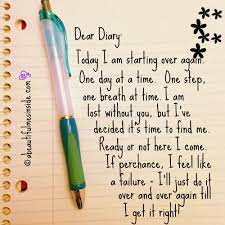 Dear Diary
Today I am starting over again.
One day at a time. One step,
one breath at time. I am
lost without you, but I've
decided it's time to find me.
Ready or not here I come.
If perchance, I feel like
a failure - I'll just do it
over and over again till
I get it right!
© abeautifulmesinside.com